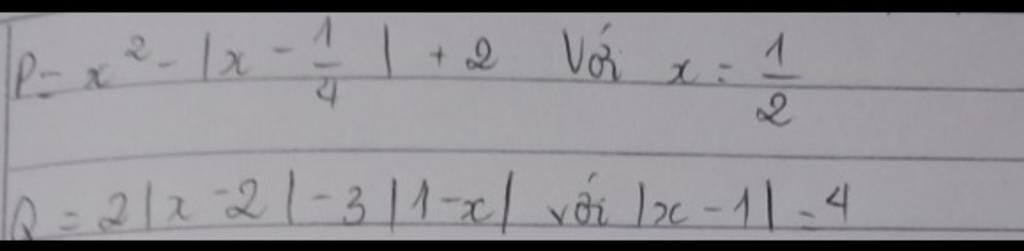 P = x² - |x - 1/4| + 2 Với x = 1/2
Q = 2|x - 2| - 3|1 - x| với |x - 1| = 4